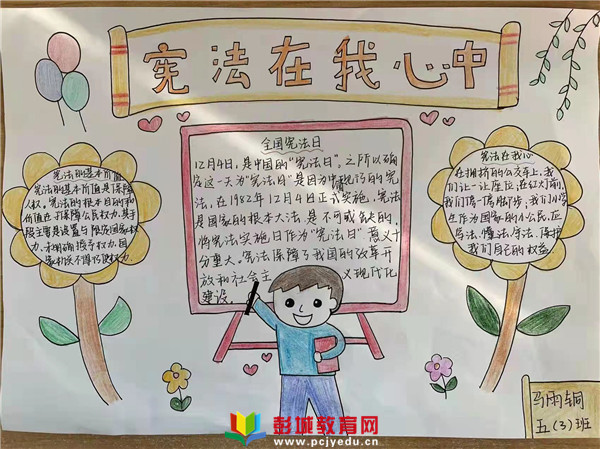 宪法在我心中
全国宪法日
12月4日,是中国的“宪法日”。之所以确
定这一天为“宪法日”是因为中国现行的宪
法,在1982年12月4日正式实施,宪法
是国家的根本大法,是不可或缺的,
将宪法实施日作为“宪法日”意义十
分重大。宪法保障了我国的改革开
放和社会主义现代化
建设。
宪法的基本价值
宪法的基本价值是保障
人权。宪法的根本目的和
价值在于保障公民权力,基于
宪法在我心
在拥挤的公交车上,我
们让一让座位,在红灯前,
我们停一停脚步;我们小学
生作为国家的小公民,应
学法、懂法、守法、保护
我们自己的权益。
五(3)班
彭城教育网
www.pcjyedu.cn